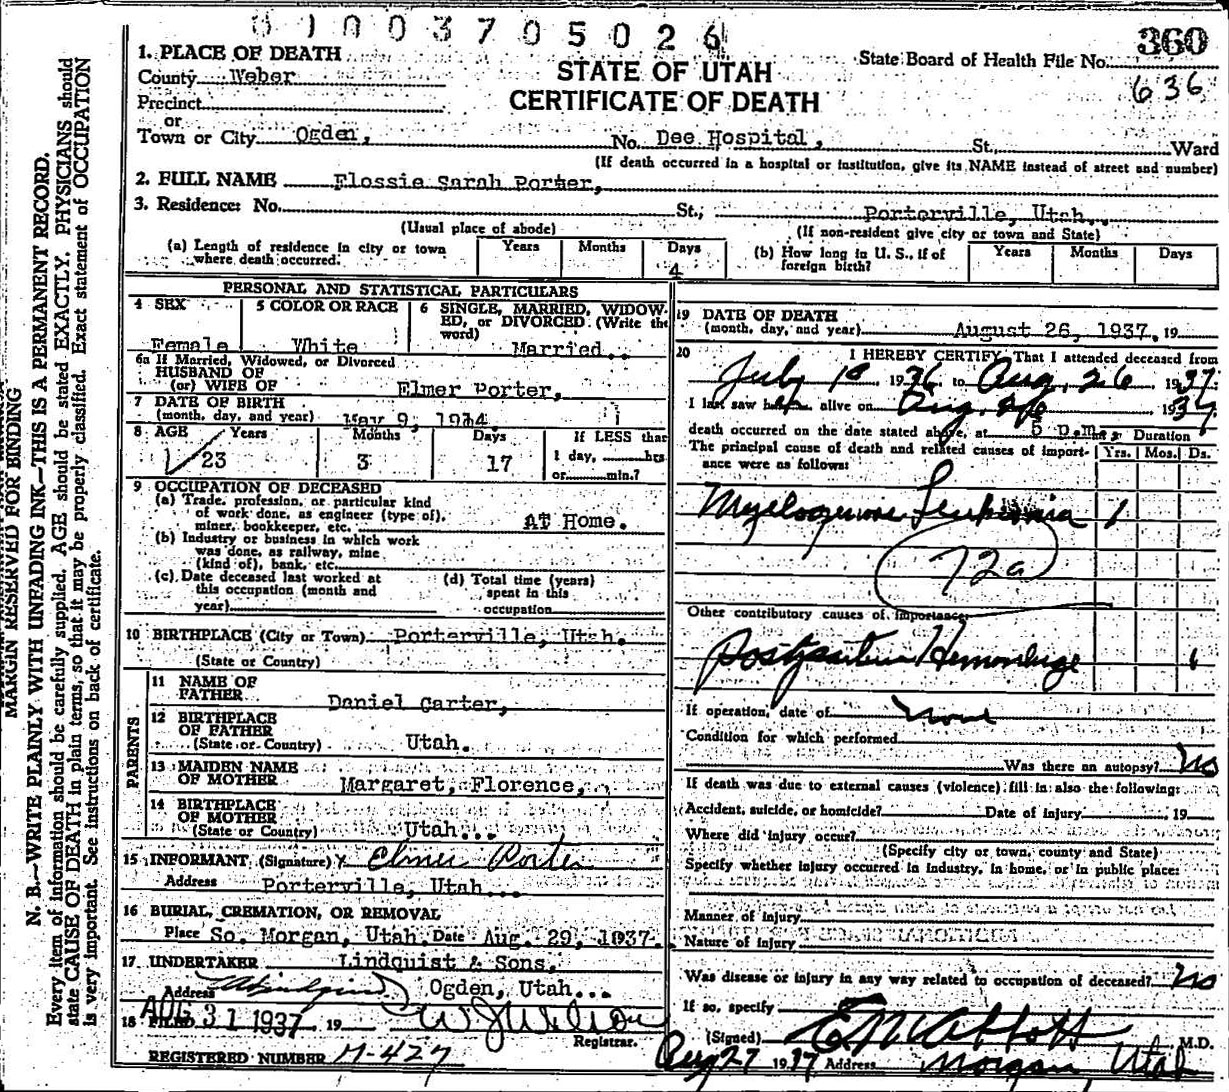 01003705026
360
1. PLACE OF DEATH
STATE OF UTAH
State Board of Health File No.
County Weber
636
CERTIFICATE OF DEATH
Precinct
or
Town or City Ogden, No. Dee Hospital, St. Ward
(If death occurred in a hospital or institution, give its NAME instead of street and number)
2. FULL NAME Flossie Sarah Porter,
3. Residence: No. St., Porterville, Utah.
(Usual place of abode) (If non-resident give city or town and State)
(a) Length of residence in city or town where death occurred. Years Months Days 4
(b) How long in U. S., if of foreign birth? Years Months Days
PERSONAL AND STATISTICAL PARTICULARS
4 SEX Female
5 COLOR OR RACE White
6 SINGLE, MARRIED, WIDOWED, or DIVORCED (Write the word) Married..
6a If Married, Widowed, or Divorced
HUSBAND OF
(or) WIFE OF Elmer Porter,
7 DATE OF BIRTH
(month, day, and year) May 9, 1914.
8 AGE Years Months Days If LESS than
23 3 17 1 day, hrs
or min.?
9 OCCUPATION OF DECEASED
(a) Trade, profession, or particular kind
of work done, as engineer (type of),
miner, bookkeeper, etc. At Home.
(b) Industry or business in which work
was done, as railway, mine
(kind of), bank, etc.
(c) Date deceased last worked at
this occupation (month and
year)
(d) Total time (years)
spent in this
occupation
10 BIRTHPLACE (City or Town) Porterville, Utah.
(State or Country)
PARENTS
11 NAME OF
FATHER Daniel Carter,
12 BIRTHPLACE
OF FATHER
(State or Country) Utah.
13 MAIDEN NAME
OF MOTHER Margaret, Florence,
14 BIRTHPLACE
OF MOTHER
(State or Country) Utah...
15 INFORMANT (Signature) x Elmer Porter
Address Porterville, Utah...
16 BURIAL, CREMATION, OR REMOVAL
Place So. Morgan, Utah. Date Aug. 29, 1937.
17 UNDERTAKER Lindquist & Sons,
Address Ogden, Utah...
18 FILED AUG 31 1937 19 W J Wilson
Registrar.
REGISTERED NUMBER M-427
19 DATE OF DEATH
(month, day, and year) August 26, 1937. 19
20 I HEREBY CERTIFY, That I attended deceased from
July 18 1936 to Aug. 26 1937
I last saw her alive on Aug. 26 1937
death occurred on the date stated above, at 5 p.m. Duration
The principal cause of death and related causes of importance were as follows: Yrs. Mos. Ds.
Myelogenous Leukemia 1
72a
Other contributory causes of importance:
Postpartum Hemorrhage 1
If operation, date of None
Condition for which performed
Was there an autopsy? No
If death was due to external causes (violence) fill in also the following:
Accident, suicide, or homicide? Date of injury 19
Where did injury occur?
(Specify city or town, county and State)
Specify whether injury occurred in industry, in home, or in public place:
Manner of injury
Nature of injury
Was disease or injury in any way related to occupation of deceased? No
If so, specify
(Signed) E M Abbott M.D.
Aug 27 1937 Address Morgan, Utah
MARGIN RESERVED FOR BINDING
N. B.—WRITE PLAINLY WITH UNFADING INK—THIS IS A PERMANENT RECORD.
Every item of information should be carefully supplied. AGE should be stated EXACTLY. PHYSICIANS should
state CAUSE OF DEATH in plain terms, so that it may be properly classified. Exact statement of OCCUPATION
is very important. See instructions on back of certificate.